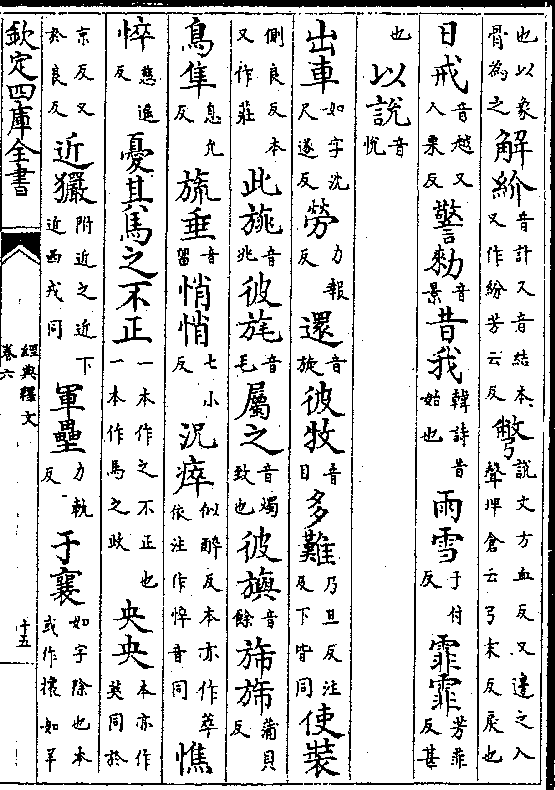 也以象骨為之解紒音計又音結本又作紛芳云反彆說文方血反又邊之入聲埤倉云弓末反戾也
日戒音越又人栗反警勑音景昔我韓詩昔始也雨雪于付反霏霏芳菲反甚
也以說音悅
出車如字沈尺遂反勞力報反還音旋彼牧音目多難乃旦反注及下皆同使裝
側良反本又作莊此旐音兆彼旄音毛屬之音燭致也彼旟音餘旆旆蒲貝反
鳥隼息允反旒垂音留悄悄七小反況瘁似醉反本亦作萃依注作悴音同憔
悴慈遙反憂其馬之不正一本作之不正也一本作馬之政央央本亦作英同於
京反又於良反近玁附近之近下近西戎同軍壘力軌反于襄如字除也本或作攘如羊
欽定四庫全書
經典釋文
卷六
十五